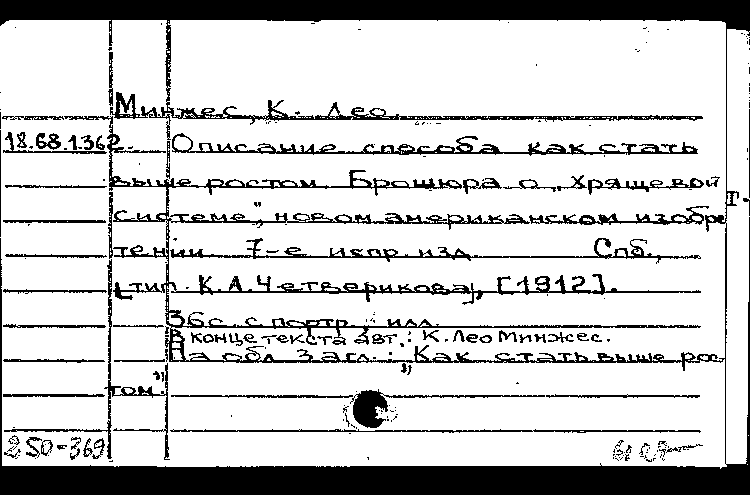 Минжес, К. Лео.
18.68.1.362. Описание способа как стать
выше ростом. Брошюра о „хрящевой
системе", новом американском изобре
тении 7-е испр. изд. Спб.,
[тип. К.А.Четверикова], [1912].
36с. с портр. илл.
В конце текста авт.: К. Лео Минжес.
На обл. загл.: „Как стать выше рос
том."
250-369